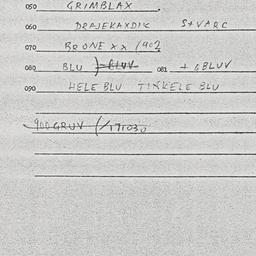 050 GRIMBLAX
060 DRAJEKAXDIK S+VARC
070 BRONE XX 1902
080 BLU 081 + GBLUV
090 HELE BLU TINKELE BLU
900 GRUV